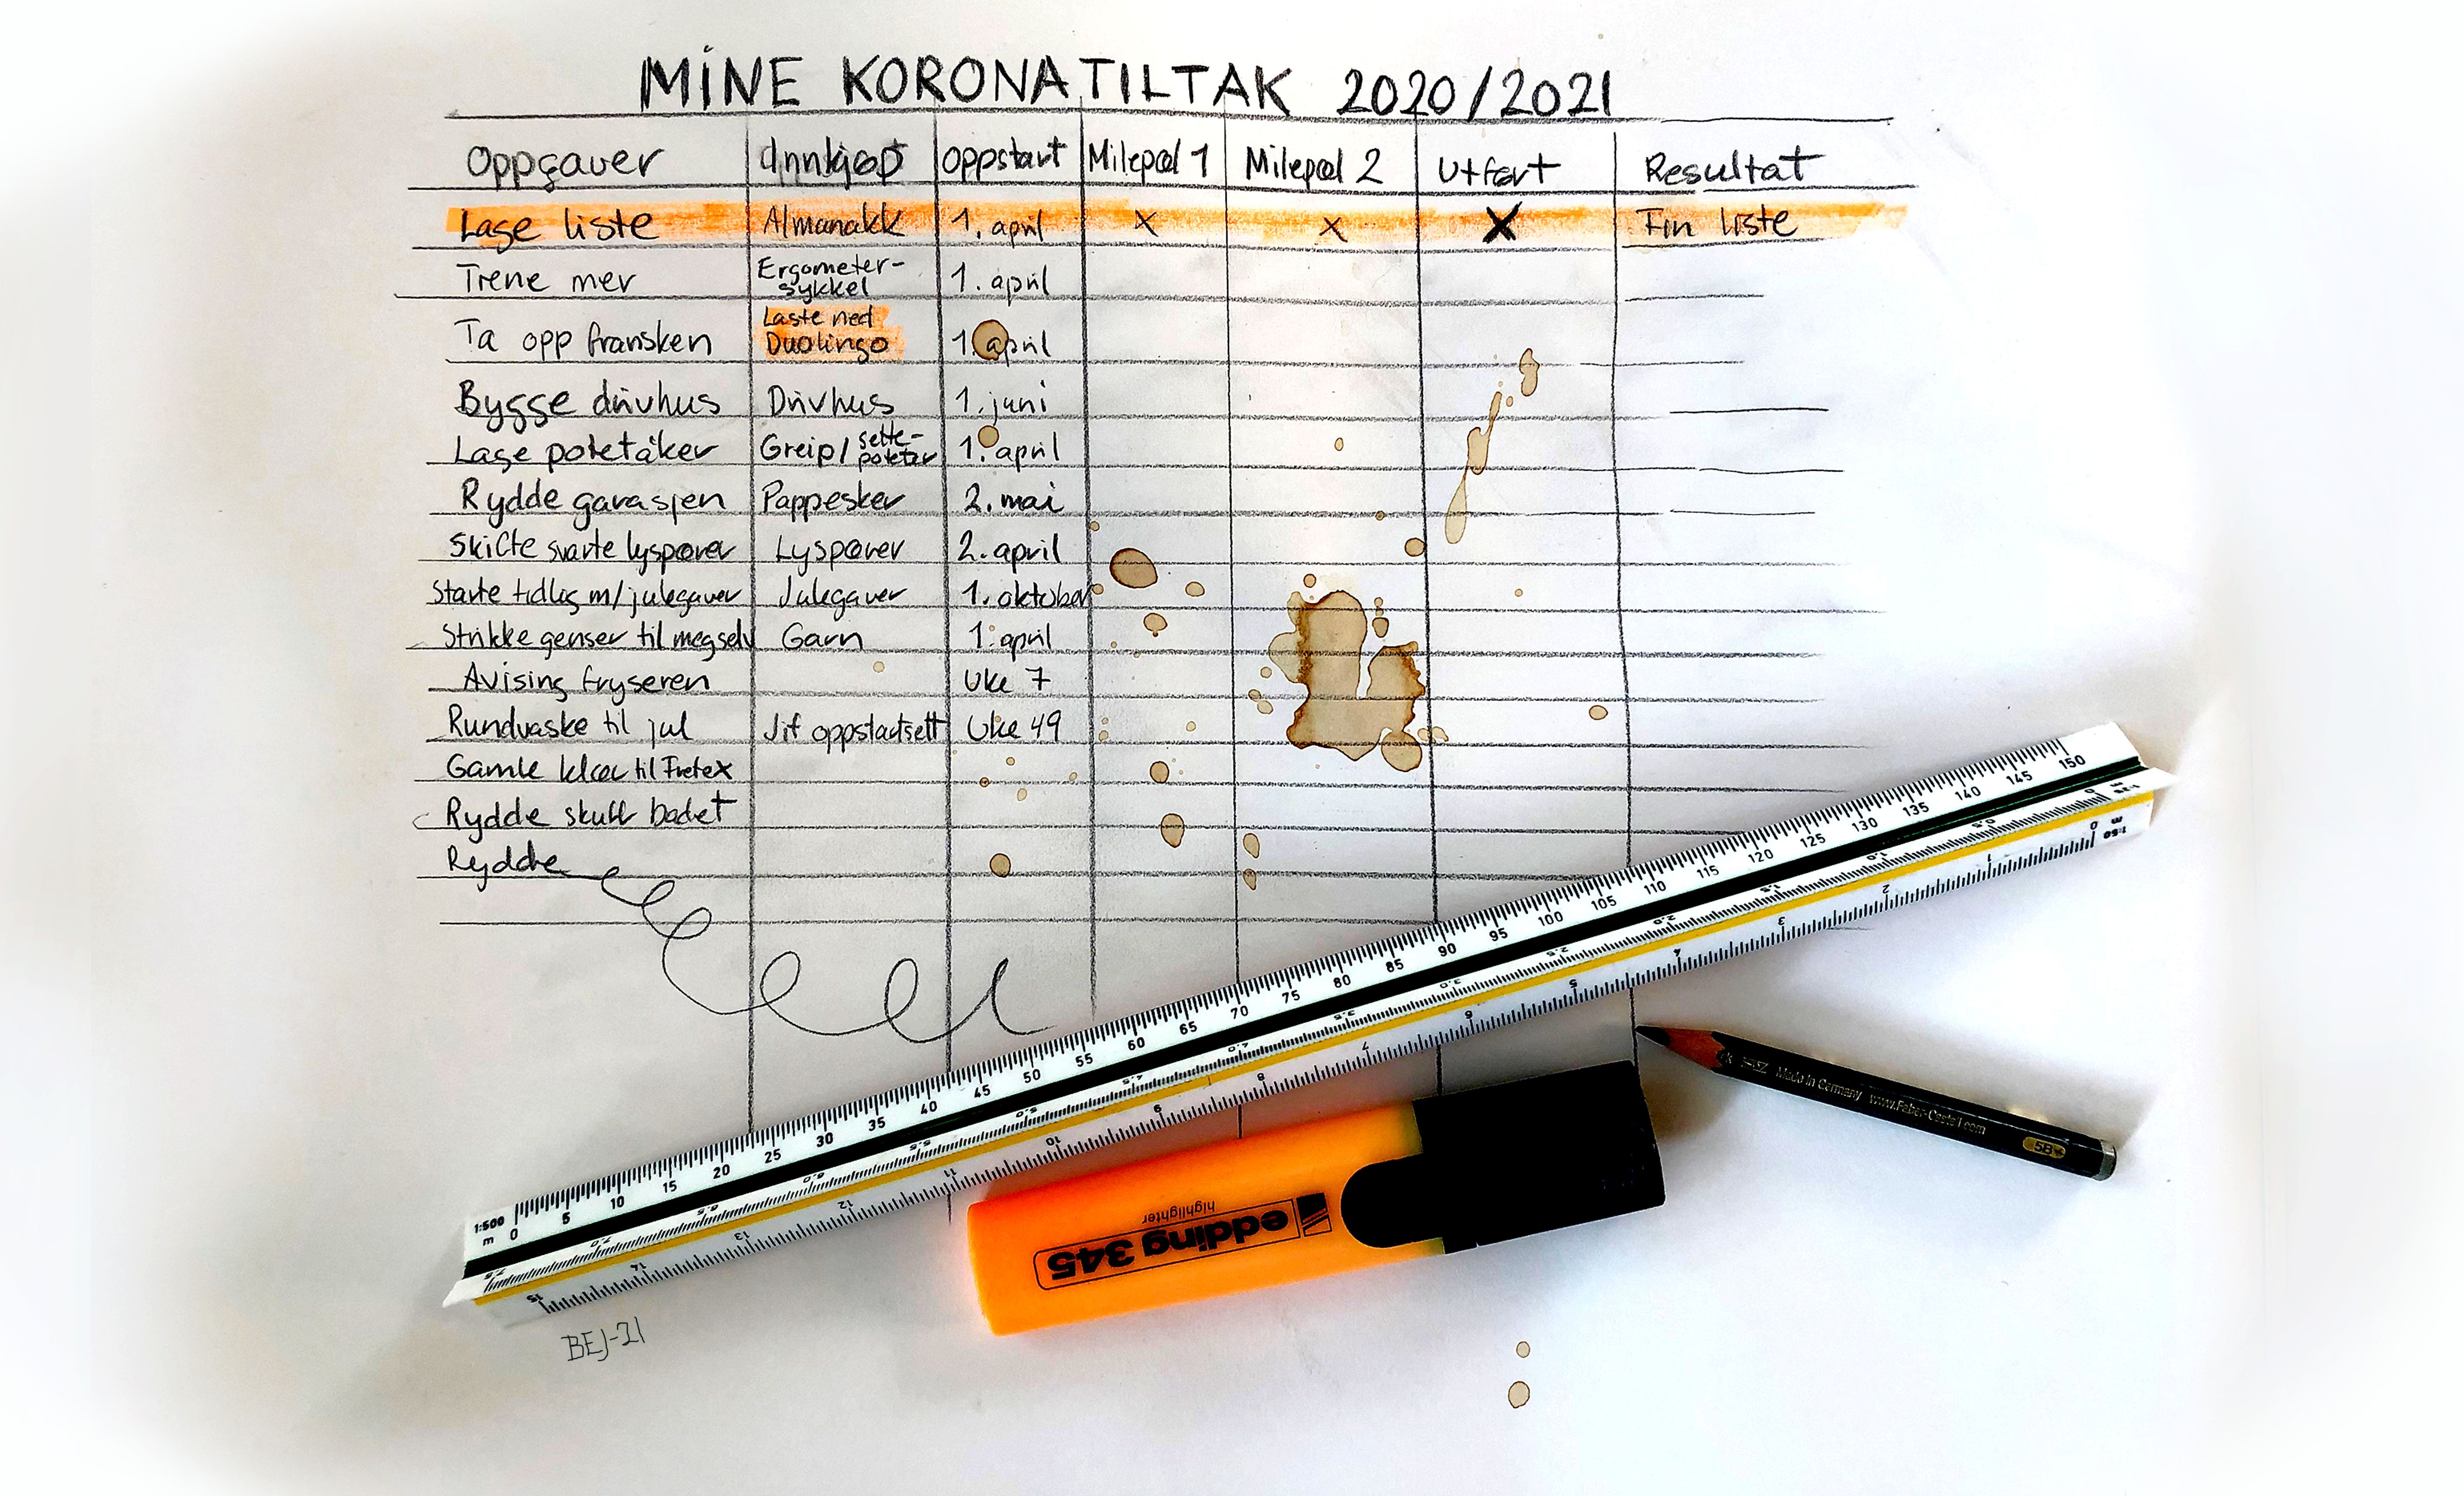 MINE KORONATILTAK 2020/2021
Oppgaver Innkjøp Oppstart Milepæl 1 Milepæl 2 Utført Resultat
Lage liste Almanakk 1. april x x X Fin liste
Trene mer Ergometer-sykkel 1. april
Ta opp fransken Laste ned Duolingo 1. april
Bygge drivhus Drivhus 1. juni
Lage potetåker Greip/settepoteter 1. april
Rydde garasjen Pappesker 2. mai
Skifte svarte lyspærer Lyspærer 2. april
Starte tidlig m/julegaver Julegaver 1. oktober
Strikke genser til meg selv Garn 1. april
Avising fryseren Uke 7
Rundvaske til jul Jif oppstartsett Uke 49
Gamle klær til Fretex
Rydde skuff badet
Rydde
1:500 m 0 5 10 15 20 25 30 35 40 45 50 55 60 65 70 75 80 85 90 95 100 105 110 115 120 125 130 135 140 145 150
1:50 m 0 1 2 3 4 5 6 7 8 9 10 11 12 13 14 15
Made in Germany www.Faber-Castell.com 5B
edding 345
highlighter
BEJ-21